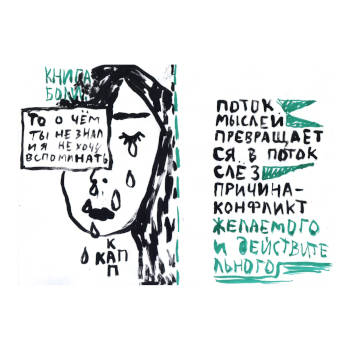 КНИГА
БОЛИ
ТО О ЧЁМ
ТЫ НЕ ЗНАЛ
И Я НЕ ХОЧУ
ВСПОМИНАТЬ
К
КАП
П
ПОТОК
МЫСЛЕЙ
ПРЕВРАЩАЕТ
СЯ В ПОТОК
СЛЁЗ
ПРИЧИНА-
КОНФЛИКТ
ЖЕЛАЕМОГО
И ДЕЙСТВИТЕ
ЛЬНОГО